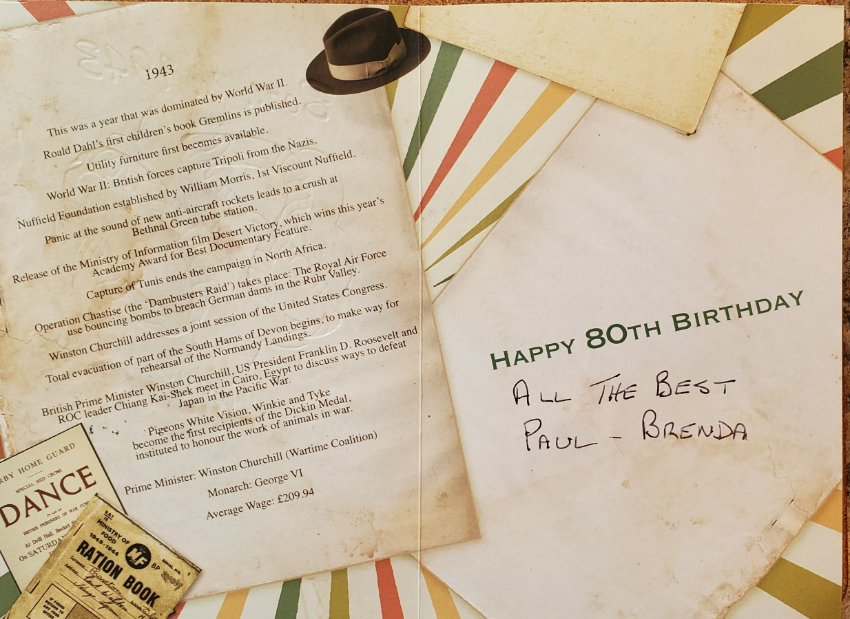 1943
This was a year that was dominated by World War II
Roald Dahl's first children's book Gremlins is published.
Utility furniture first becomes available.
World War II: British forces capture Tripoli from the Nazis.
Nuffield Foundation established by William Morris, 1st Viscount Nuffield.
Panic at the sound of new anti-aircraft rockets leads to a crush at
Bethnal Green tube station.
Release of the Ministry of Information film Desert Victory, which wins this year's
Academy Award for Best Documentary Feature.
Capture of Tunis ends the campaign in North Africa.
Operation Chastise (the 'Dambusters Raid') takes place: The Royal Air Force
use bouncing bombs to breach German dams in the Ruhr Valley.
Winston Churchill addresses a joint session of the United States Congress.
Total evacuation of part of the South Hams of Devon begins, to make way for
rehearsal of the Normandy Landings.
British Prime Minister Winston Churchill, US President Franklin D. Roosevelt and
ROC leader Chiang Kai-Shek meet in Cairo, Egypt to discuss ways to defeat
Japan in the Pacific War.
Pigeons White Vision, Winkie and Tyke
become the first recipients of the Dickin Medal,
instituted to honour the work of animals in war.
Prime Minister: Winston Churchill (Wartime Coalition)
Monarch: George VI
Average Wage: £209.94
HAPPY 80TH BIRTHDAY
ALL THE BEST
PAUL - BRENDA
RBY HOME GUARD
SPECIAL RED CROSS
DANCE
BRITISH PRISONERS OF WAR
At Dell Hall, Becket
On SATURDAY
MINISTRY OF
FOOD
1943-1944
MF
SERIAL NO.
BP
RATION BOOK